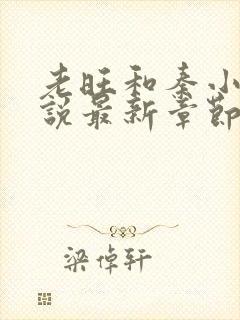 老旺和秦小
說最新章節
梁倬轩